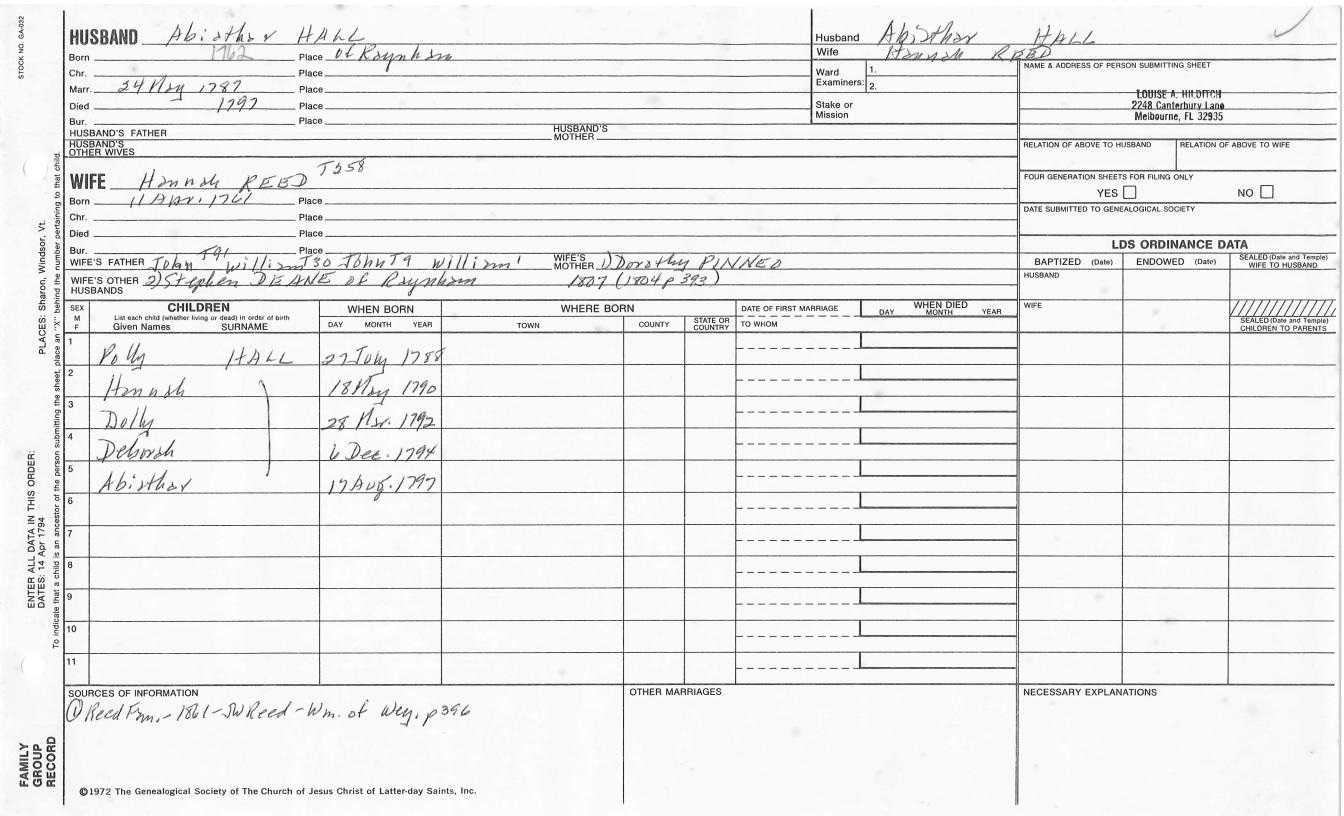 STOCK NO. GA-032
HUSBAND Abiathar HALL
Born 1762 Place of Raynham
Chr. Place
Marr. 24 May 1787 Place
Died 1797 Place
Bur. Place
HUSBAND'S FATHER HUSBAND'S MOTHER
HUSBAND'S OTHER WIVES
Husband Abiathar HALL
Wife Hannah REED
Ward Examiners: 1.
2.
Stake or Mission
NAME & ADDRESS OF PERSON SUBMITTING SHEET
LOUISE A. HILDITCH
2248 Canterbury Lane
Melbourne, FL 32935
RELATION OF ABOVE TO HUSBAND RELATION OF ABOVE TO WIFE
FOUR GENERATION SHEETS FOR FILING ONLY
YES NO
DATE SUBMITTED TO GENEALOGICAL SOCIETY
WIFE Hannah REED T358
Born 11 Apr. 1761 Place
Chr. Place
Died Place
Bur. Place
WIFE'S FATHER John T91 William T30 John T9 William' WIFE'S MOTHER 1) Dorothy PINNEO
WIFE'S OTHER HUSBANDS 2) Stephen DEANE of Raynham 1807 (1804 p 393)
LDS ORDINANCE DATA
BAPTIZED (Date) ENDOWED (Date) SEALED (Date and Temple) WIFE TO HUSBAND
HUSBAND
WIFE
SEALED (Date and Temple) CHILDREN TO PARENTS
SEX M F
CHILDREN
List each child (whether living or dead) in order of birth
Given Names SURNAME
WHEN BORN
DAY MONTH YEAR
WHERE BORN
TOWN COUNTY STATE OR COUNTRY
DATE OF FIRST MARRIAGE
TO WHOM
WHEN DIED
DAY MONTH YEAR
1 Polly HALL 27 July 1788
2 Hannah 18 May 1790
3 Dolly 28 Mar. 1792
4 Deborah 6 Dec. 1794
5 Abiathar 17 Aug. 1797
6
7
8
9
10
11
SOURCES OF INFORMATION
① Reed Fam. - 1861 - JW Reed - Wm. of Wey. p 396
OTHER MARRIAGES
NECESSARY EXPLANATIONS
©1972 The Genealogical Society of The Church of Jesus Christ of Latter-day Saints, Inc.
FAMILY GROUP RECORD
ENTER ALL DATA IN THIS ORDER:
DATES: 14 Apr 1794
PLACES: Sharon, Windsor, Vt.
To indicate that a child is an ancestor of the person submitting the sheet, place an "X" behind the number pertaining to that child.